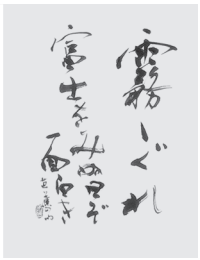 霧しぐれ
富士をみぬ日ぞ
面白き